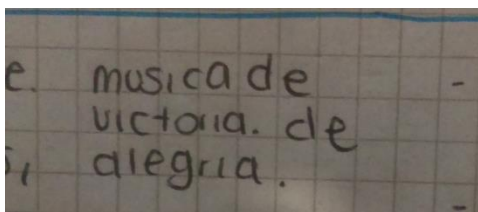 e. musica de
victoria. de
alegria.